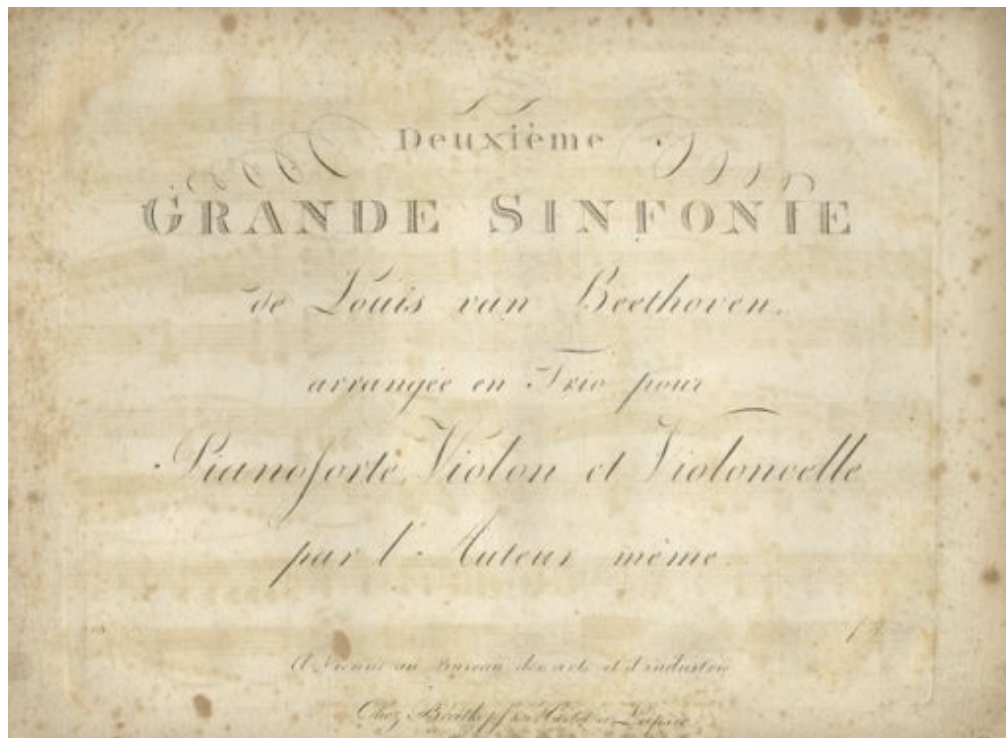 Deuxième
GRANDE SINFONIE
de Louis van Beethoven.
arrangée en Trio pour
Pianoforte, Violon et Violoncelle
par l'Auteur même.
A Vienne au Bureau des arts et d'industrie
Chez Breitkopf